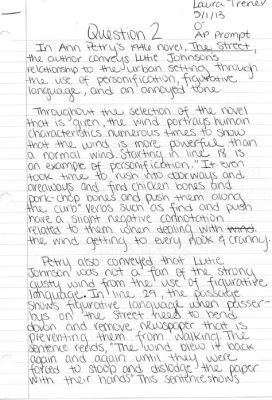 Laura Trener
5/1/13
0°
AP Prompt
Question 2
In Ann Petry's 1946 novel, The Street,
the author conveys Lutie Johnson's
relationship to the urban setting through
the use of personification, figurative
language, and an annoyed tone.
Throughout the selection of the novel
that is given, the wind portrays human
characteristics numerous times to show
that the wind is more powerful than
a normal wind. Starting in line 18 is
an example of personification. "It even
took time to rush into doorways and
areaways and find chicken bones and
pork-chop bones and push them along
the curb" Verbs such as find and push
have a swept negative connotation
related to them when dealing with
the wind getting to every nook & cranny.
Petry also conveyed that Lutie
Johnson was not a fan of the strong
gusty wind from the use of figurative
language. In line 29, the passage
shows figurative language when passer-
bys on the street need to bend
down and remove newspaper that is
preventing them from walking. The
sentence reads, "The wind blew it back
again and again until they were
forced to stoop and dislodge the paper
with their hands" This sentence shows